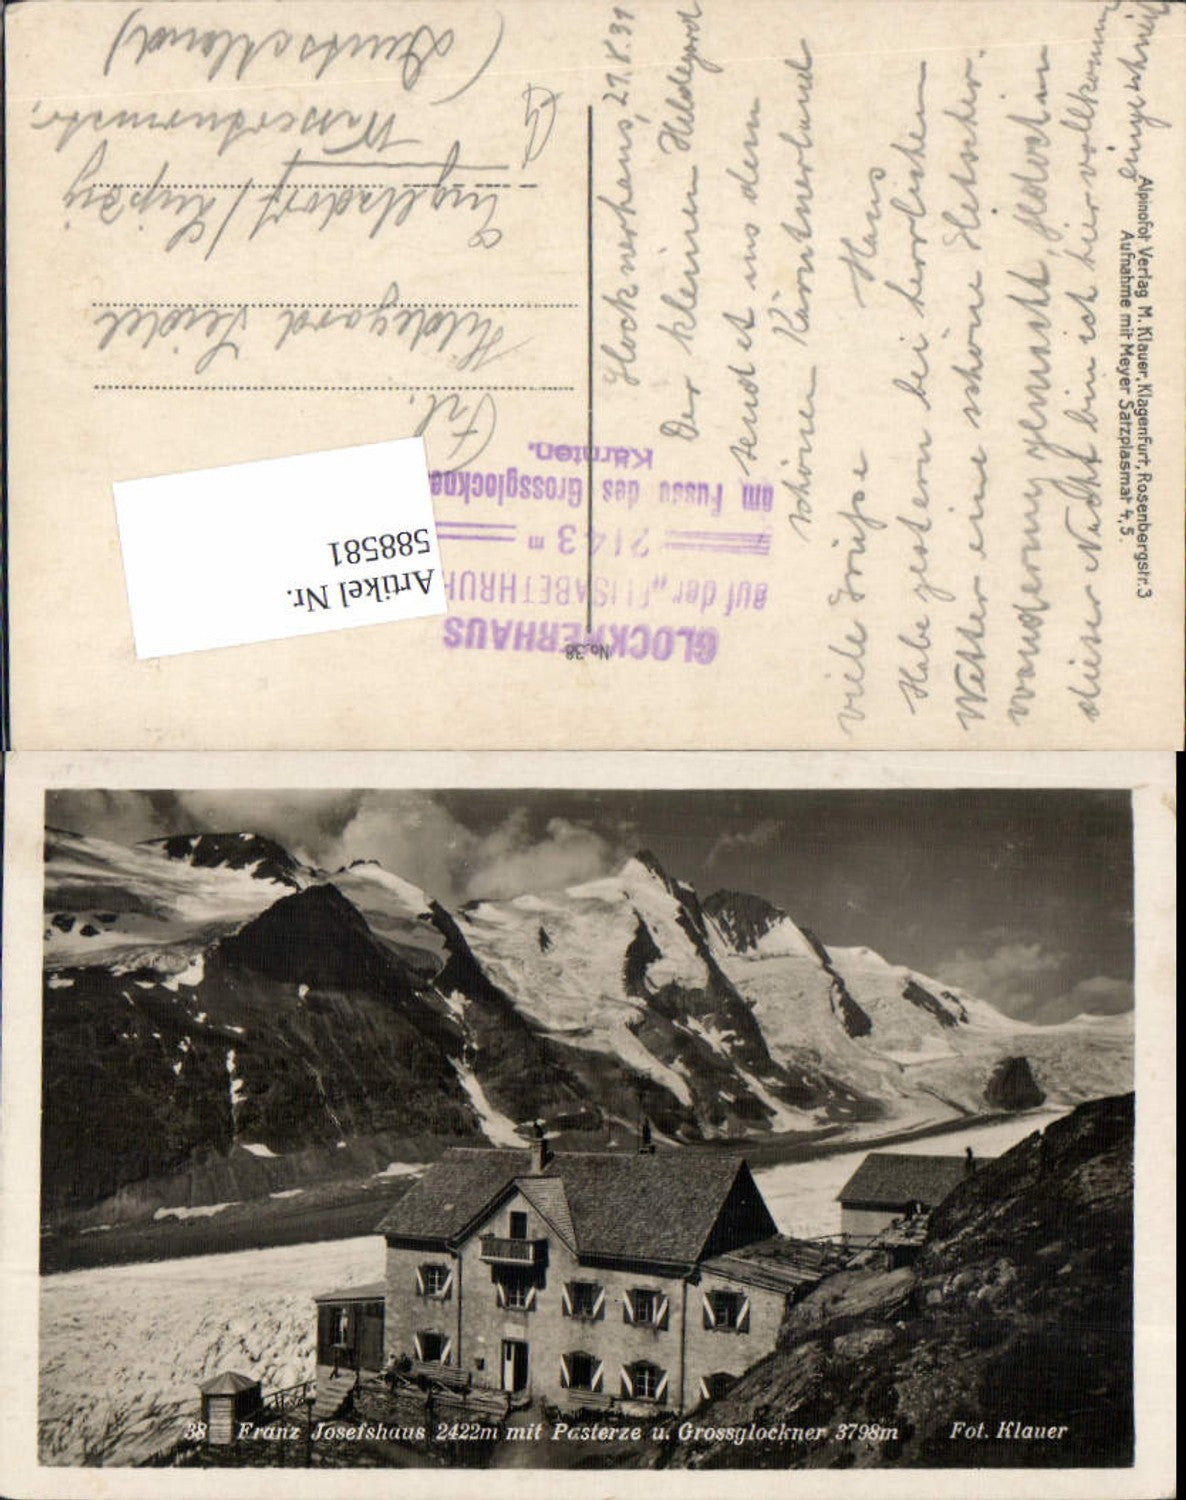 Glocknerhaus, 21.8.31
Der kleinen Hildegard
sendet aus dem
schönen Kärntnerland
viele Grüsse Hans
Habe gestern bei herrlichem
Wetter eine schöne Gletscher-
wanderung gemacht, jedoch in
dieser Nacht bin ich hier vollkommen
eingeschneit
Alpinofot Verlag M. Klauer, Klagenfurt, Rosenbergstr. 3
Aufnahme mit Meyer Satzplasmat 4,5.
Frl.
Hildegard Seidel
Engelsdorf / Leipzig
Wasserturmstr.
(Deutschland)
GLOCKNERHAUS
auf der „ELISABETHRUH
2143 m
am Fusse des Grossglockne
Kärnten.
No. 38
Artikel Nr.
588581
38 Franz Josefshaus 2422m mit Pasterze u. Grossglockner 3798m Fot. Klauer